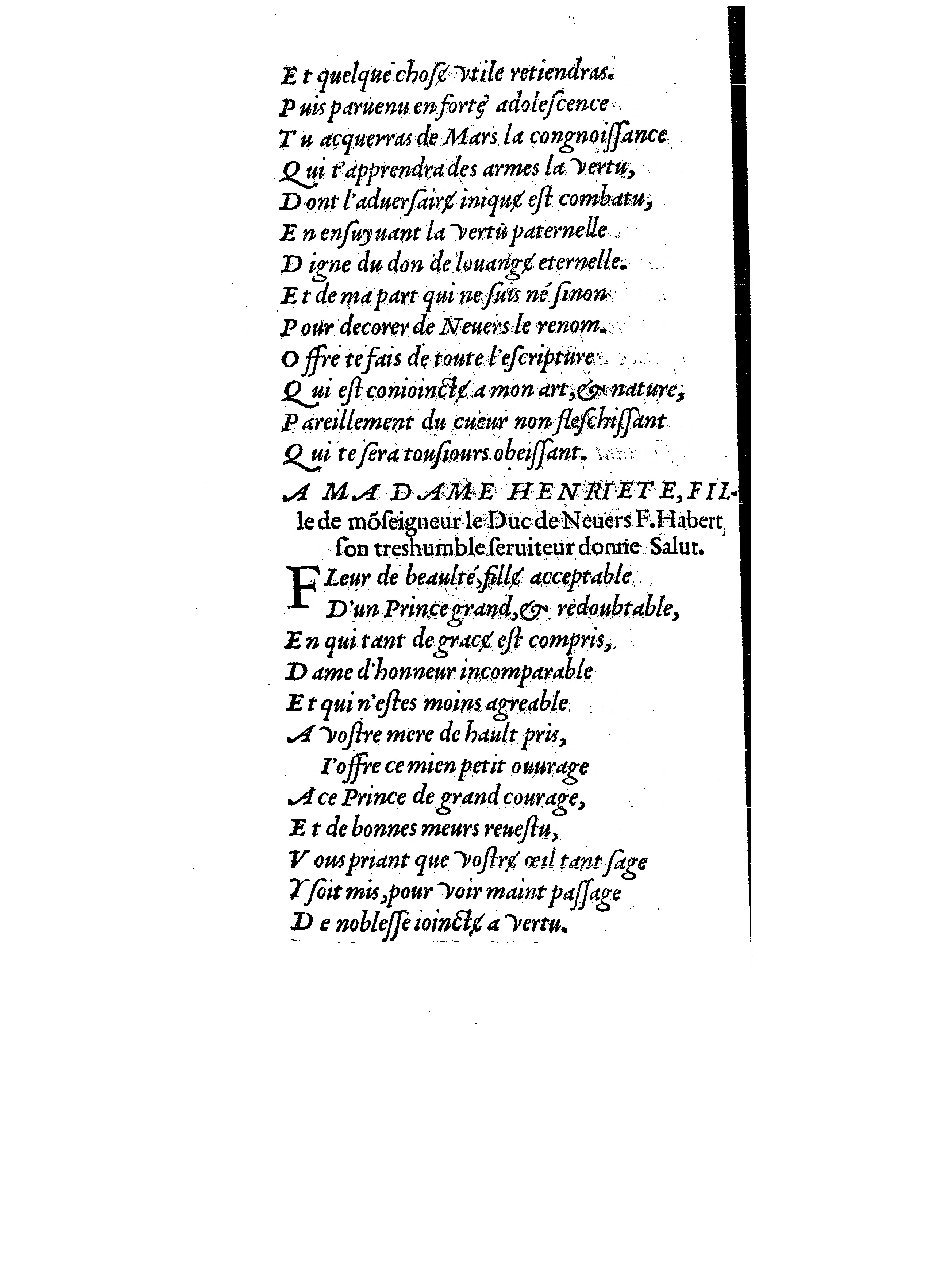 Et quelque choſɇ vtile retiendras.
Puis paruenu en fortɇ adoleſcence
Tu acquerras de Mars la congnoiſſance
Qui t'apprendra des armes la vertu,
Dont l'aduerſairɇ iniquɇ eſt combatu,
En enſuyuant la vertu paternelle
Digne du don de louangɇ eternelle.
Et de ma part qui ne ſuis né ſinon
Pour decorer de Neuers le renom.
Offre te fais de toute l'eſcripture
Qui eſt conioinctɇ a mon art, & nature,
Pareillement du cueur non fleſchiſſant
Qui te ſera touſiours obeiſſant.
A MADAME HENRIETE, FIL-
le de mõſeigneur le Duc de Neuers F. Habert
ſon treshumble ſeruiteur donne Salut.
FLeur de beaulté, fillɇ acceptable
D'un Prince grand, & redoubtable,
En qui tant de gracɇ eſt compris,
Dame d'honneur incomparable
Et qui n'eſtes moins agreable
A voſtre mere de hault pris,
I'offre ce mien petit ouurage
A ce Prince de grand courage,
Et de bonnes meurs reueſtu,
Vous priant que voſtrɇ œil tant ſage
Y ſoit mis, pour voir maint paſſage
De nobleſſe ioinctɇ a vertu.